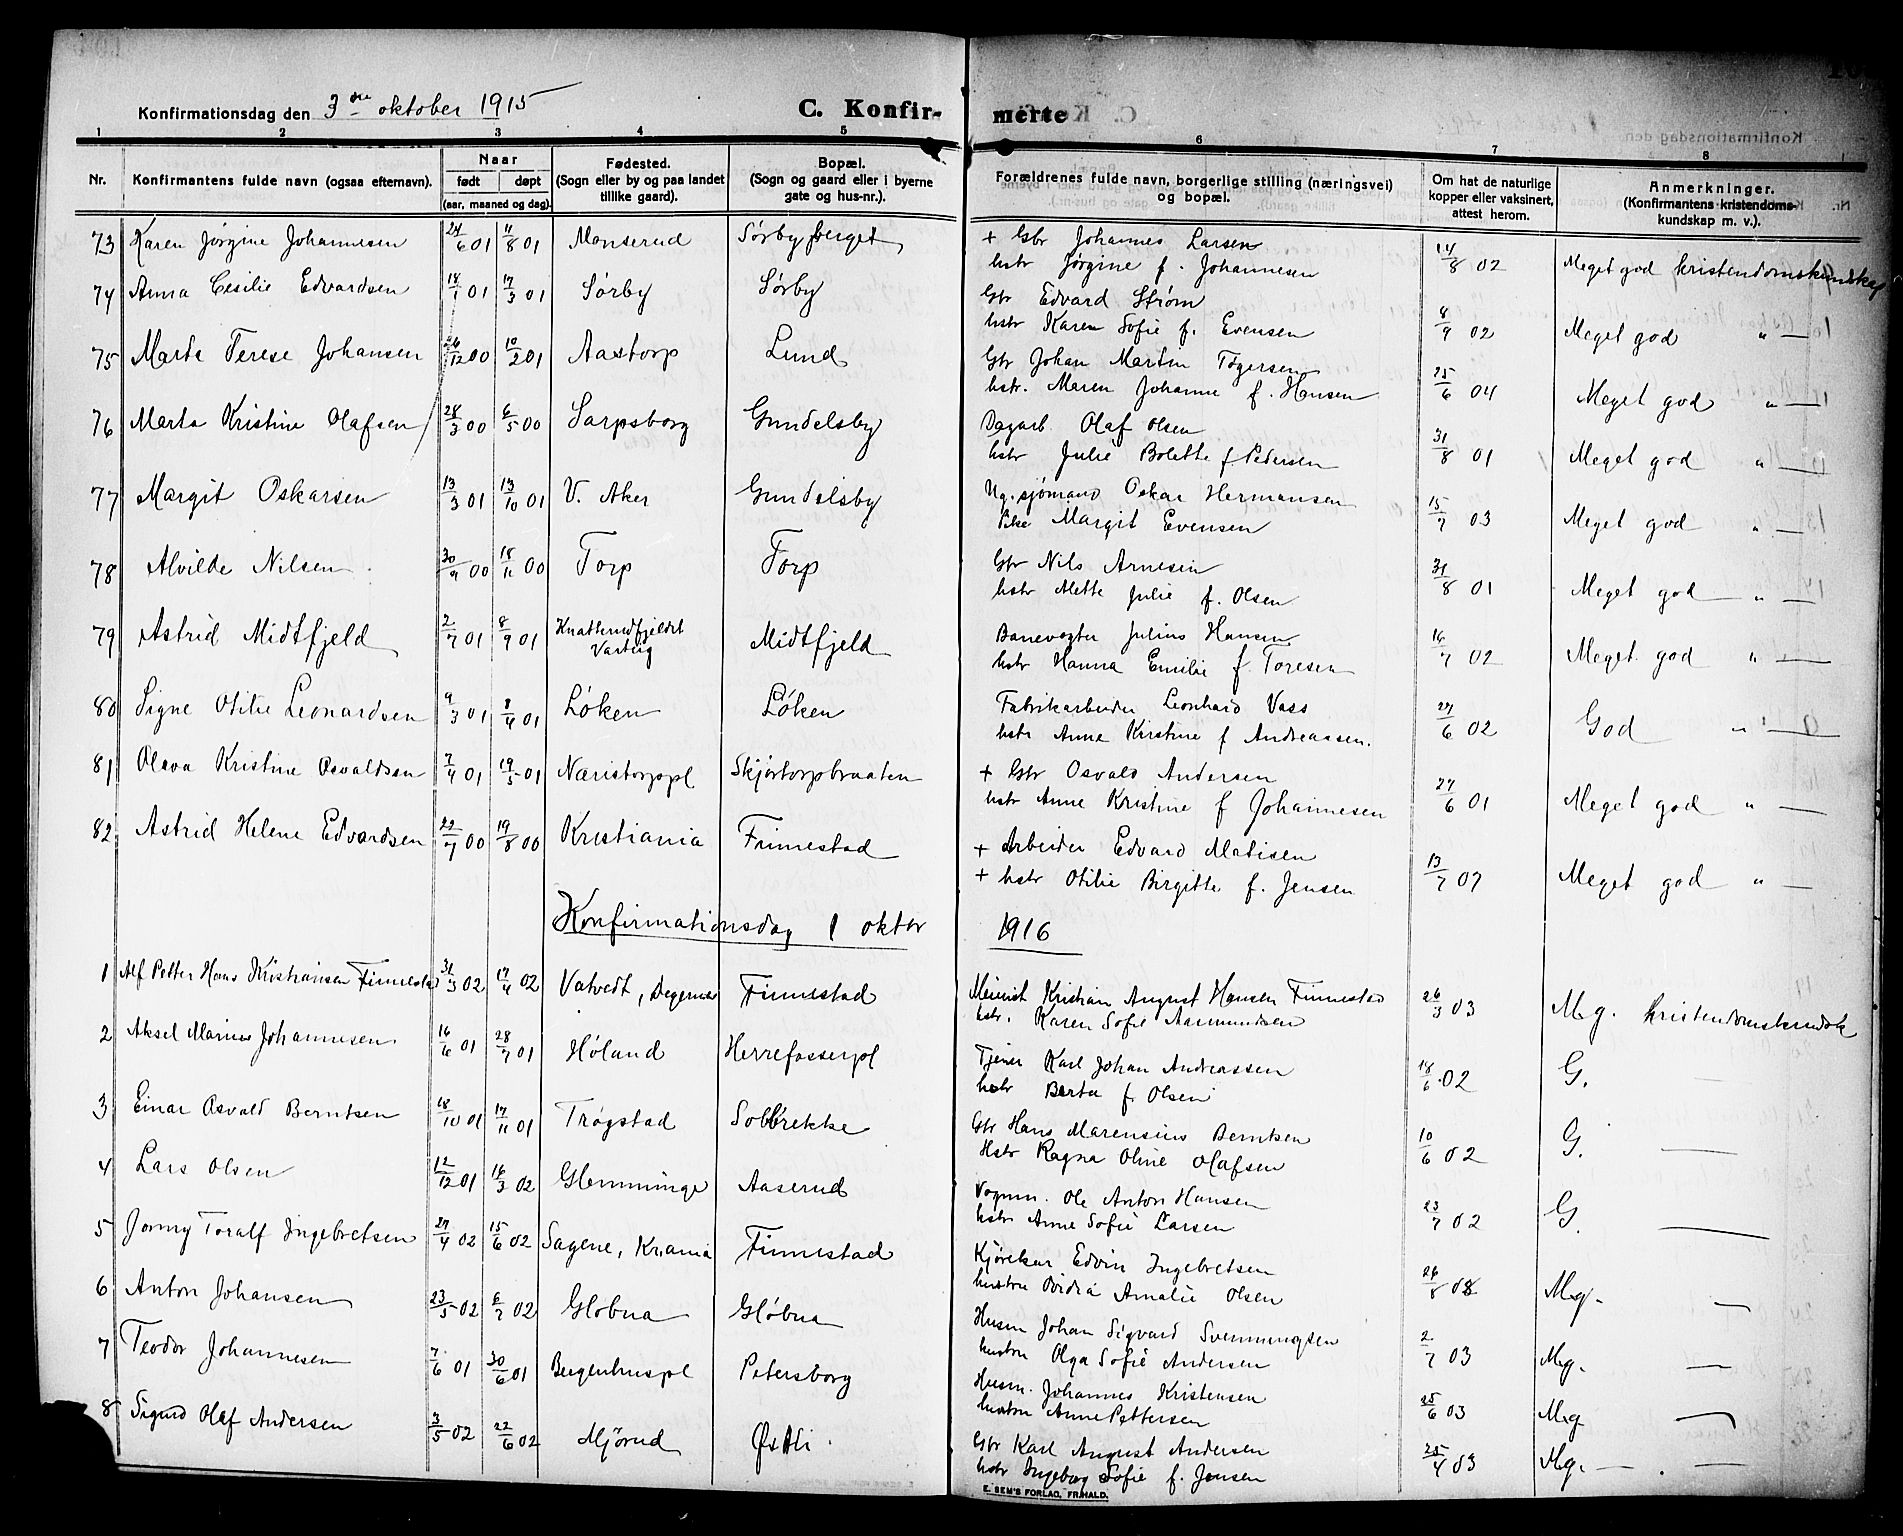 Konfirmationsdag den 3die oktober 1915 C. Konfirmerte
1 2 3 4 5 6 7 8
Nr. Konfirmantens fulde navn (ogsaa efternavn). Naar født døpt (aar, maaned og dag). Fødested. (Sogn eller by og paa landet tillike gaard). Bopæl. (Sogn og gaard eller i byerne gate og hus-nr.). Forældrenes fulde navn, borgerlige stilling (næringsvei) og bopæl. Om hat de naturlige kopper eller vaksinert, attest herom. Anmerkninger. (Konfirmantens kristendoms-kundskap m. v.).
73 Karen Jørgine Johannesen 24/6 01 11/8 01 Monserud Sørbyberget + Gbr Johannes Larsen
hstr Jørgine f. Johannesen 14/8 02 Meget god kristendomskundskap
74 Anna Cecilie Edvardsen 18/1 01 17/3 01 Sørby Sørby Gbr Edvard Strøm
hstr Karen Sofie f. Evensen 8/9 02 Meget god " —
75 Marta Terese Johansen 26/12 00 10/2 01 Aastorp Lund Gbr Johan Martin Togersen
hstr. Maren Johanne f. Hansen 25/6 04 Meget god " —
76 Marta Kristine Olafsen 28/3 00 6/5 00 Sarpsborg Gundelsby Dagarb. Olaf Olsen
hstr Julie Bolette f. Pedersen 31/8 01 Meget god " —
77 Margit Oskarsen 13/3 01 13/10 01 V. Aker Gundelsby Ug. sjømand Oskar Hermansen
Pike Margit Evensen 15/7 03 Meget god " —
78 Alvilde Nilsen 30/9 00 18/11 00 Torp Torp Gbr Nils Arnesen
hstr Mette Julie f. Olsen 31/8 01 Meget god " —
79 Astrid Midtfjeld 2/7 01 8/9 01 Knatterudfjeldet Varteig Midtfjeld Banevogter Julius Hansen
hstr Hanna Emilie f. Toresen 16/7 02 Meget god " —
80 Signe Otilie Leonardsen 9/3 01 8/4 01 Løken Løken Fabrikarbeider Leonhard Vass
hstr Anne Kristine f Andreassen. 27/6 02 God " —
81 Oleva Kristine Osvaldsen 7/4 01 19/5 01 Næristorppl Skjørtorpbraaten + Gbr Osvald Andersen
hstr Anne Kristine f Johannesen 27/6 01 Meget god " —
82 Astrid Helene Edvardsen 22/7 00 19/8 00 Kristiania Finnestad + Arbeider Edvard Matisen
+ hstr Otilie Birgitte f. Jensen 13/7 07 Meget god " —
Konfirmationsdag 1 oktbr 1916
1 Alf Petter Hans Kristiansen Finnestad 31/3 02 17/4 02 Vatvedt, Degernes Finnestad Maskinist Kristian August Hansen Finnestad
hstr. Karen Sofie Aasmundsen 26/3 03 M.g. kristendomskundsk
2 Aksel Marius Johannesen 16/6 01 28/7 01 Høland Herrefosserpl Tjener Karl Johan Andreassen
hstr Berta f. Olsen 18/6 02 G. —
3 Einar Osvald Berntsen 18/10 01 17/11 01 Trøgstad Solbrekke Gbr Hans Marensius Berntsen
Hstr Ragna Oline Olafsen 10/6 02 G. —
4 Lars Olsen 12/12 01 16/3 02 Glemminge Aaserud Vognm. Ole Anton Hansen
hstr Anne Sofie Larsen 23/7 02 G. —
5 Jonny Toralf Ingebretsen 27/4 02 15/6 02 Sagene, Kr.ania Finnestad Kjørekar Edvin Ingebretsen
hustru Ovidia Amalie Olsen 26/8 08 M.g. —
6 Anton Johansen 23/5 02 6/7 02 Globua Gløbua Husm Johan Sigvard Svenningsen
hustru Olga Sofie Andersen 2/7 03 M.g. —
7 Teodor Johannesen 7/6 01 30/6 01 Bergenhuspl Petersborg Husm. Johannes Kristensen
hustru Anne Pettersen 25/6 03 M.g —
8 Sigurd Olaf Andersen 3/5 02 22/6 02 Mjørud Østli Gbr Karl August Andersen
hstr Ingeborg Sofie f. Jensen 25/4 03 M.g. —
E. SEM'S FORLAG, FR.HALD.